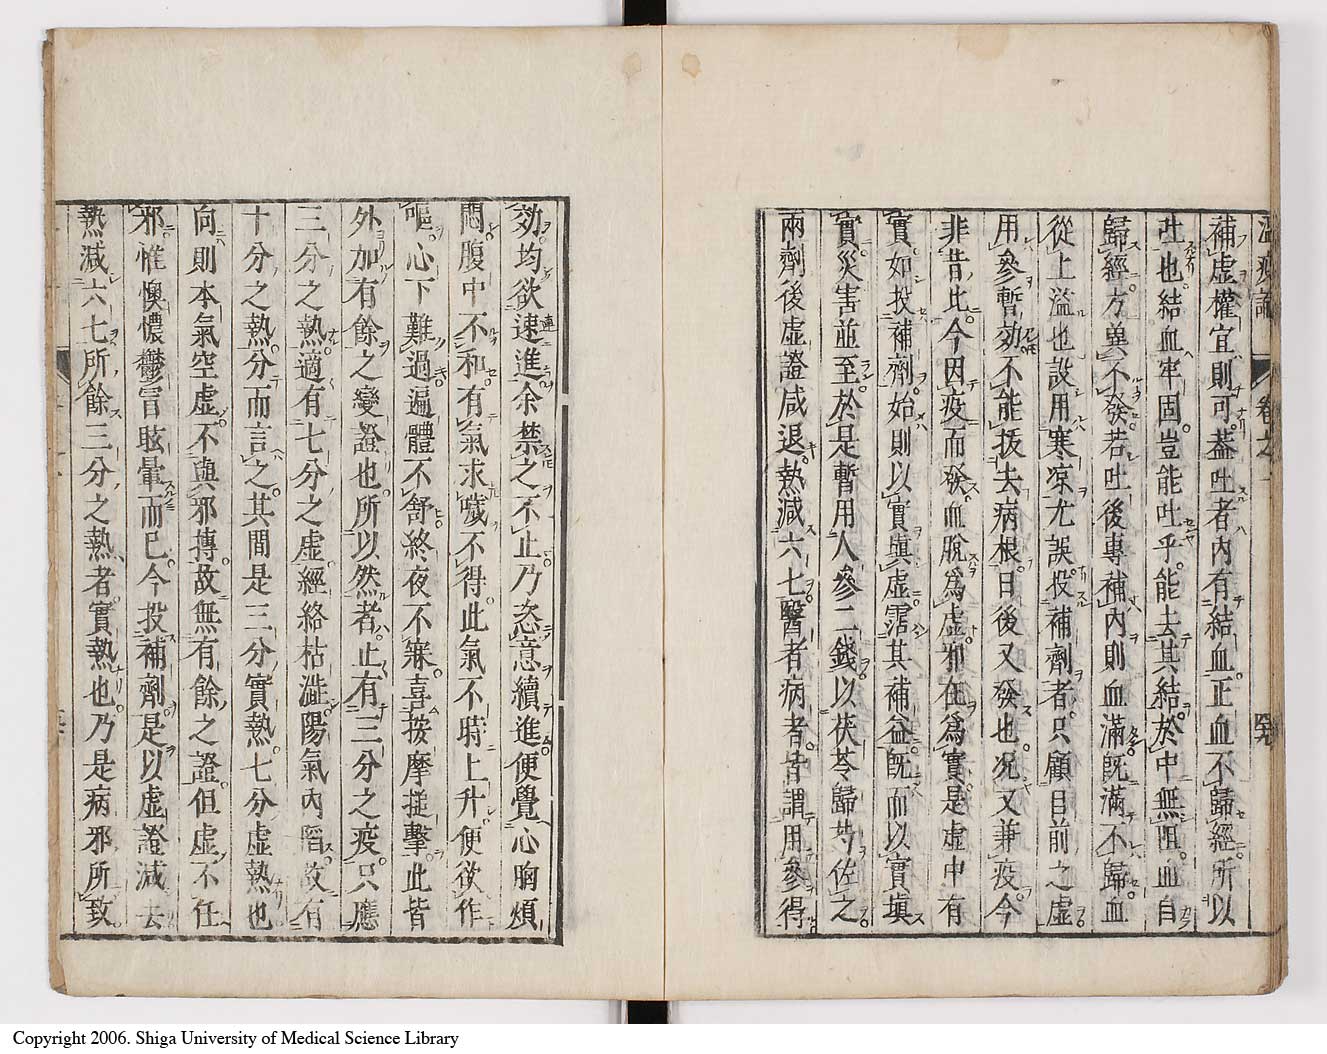 補虛權宜則可蓋吐者內有結血正血不歸經所以
吐也結血牢固豈能吐乎能去其結於中無阻血自
歸經方與不發若吐後專補內則血滿既滿不歸血
從上溢也設用寒凉尤誤投補劑者只顧目前之虛
用參暫効不能拔去病根日後又發也况又兼疫今
非昔比今因疫而發血脫為虛邪在為實是虛中有
實如投補劑始則以實塡虛霑其補益既而以實塡
實災害並至於是暫用人參二錢以茯苓歸芍佐之
兩劑後虛證咸退熱減六七醫者病者皆謂用參得
効均欲速進余禁之不止乃恣意續進便覺心胸煩
悶腹中不和有氣求噦不得此氣不時上升便欲作
嘔心下難過遍體不舒終夜不寐喜按摩搥擊此皆
外加有餘之變證也所以然者止有三分之疫只應
三分之熱適有七分之虛經絡枯澁陽氣內陷故有
十分之熱分而言之其間是三分實熱七分虛熱也
向則本氣空虛不與邪搏故無有餘之證但虛不任
邪惟懊憹鬱冒眩暈而已今投補劑是以虛證減去
熱減六七所餘三分之熱者實熱也乃是病邪所致
Copyright 2006. Shiga University of Medical Science Library